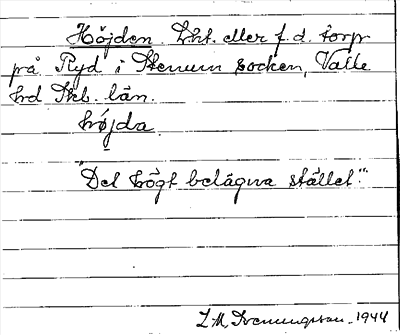 Höjden. Lht. eller f.d. torp
på Ryd i Stenum socken, Valle
hd Skb. län.
höjda
"Det högt belägna stället."
L.M. Svenungsson. 1944